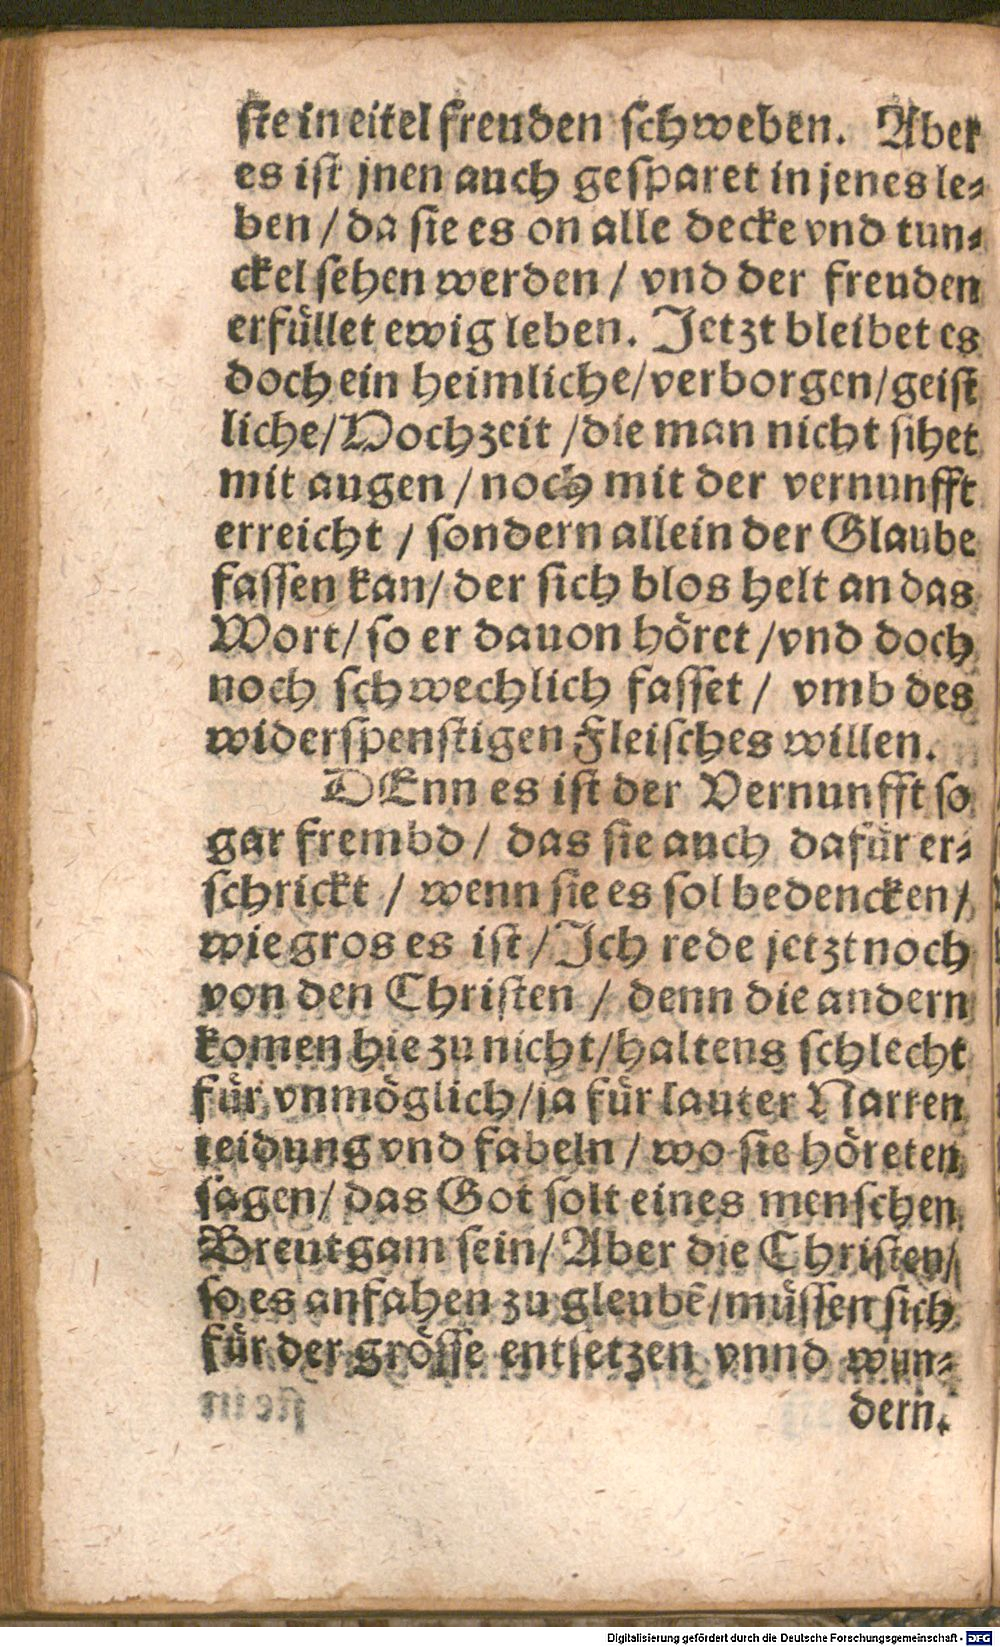 ste in eitel freuden schweben. Aber
es ist jnen auch gesparet in jenes le⸗
ben / da sie es on alle decke vnd tun⸗
ckel sehen werden / vnd der freuden
erfüllet ewig leben. Jetzt bleibet es
doch ein heimliche/verborgen/geist
liche/Hochzeit /die man nicht sihet
mit augen / noch mit der vernunfft
erreicht / sondern allein der Glaube
fassen kan/ der sich blos helt an das
Wort/ so er dauon höret /vnd doch
noch schwechlich fasset / vmb des
widerspenstigen Fleisches willen.
DEnn es ist der Vernunfft so
gar frembd / das sie auch dafür er⸗
schrickt / wenn sie es sol bedencken /
wie gros es ist / Ich rede jetzt noch
von den Christen / denn die andern
komen hie zu nicht/haltens schlecht
für vnmöglich/ja für lauter Narren
teidung vnd fabeln / wo sie höreten
sagen/ das Got solt eines menschen
Breutgam sein/ Aber die Christen/
so es anfahen zu gleubẽ/müssen sich
für der grösse entsetzen vnnd wun⸗
dern.
Digitalisierung gefördert durch die Deutsche Forschungsgemeinschaft - DFG